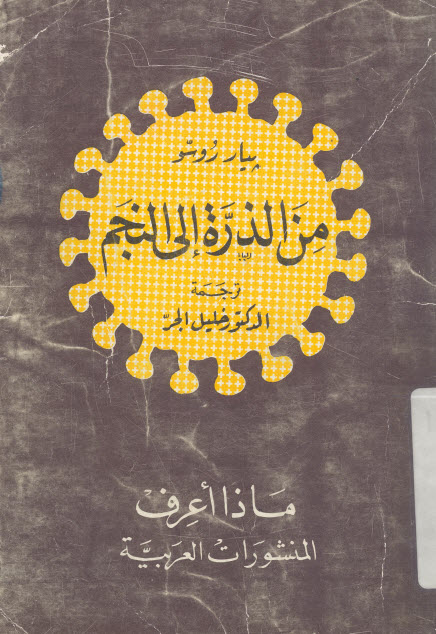 بيار روسّو
مِنَ الذرَّة إلى النجم
ترجَمة
الدكتور خليل الجرّ
مَاذا أعرِف
المنشورَات العَربيَّة